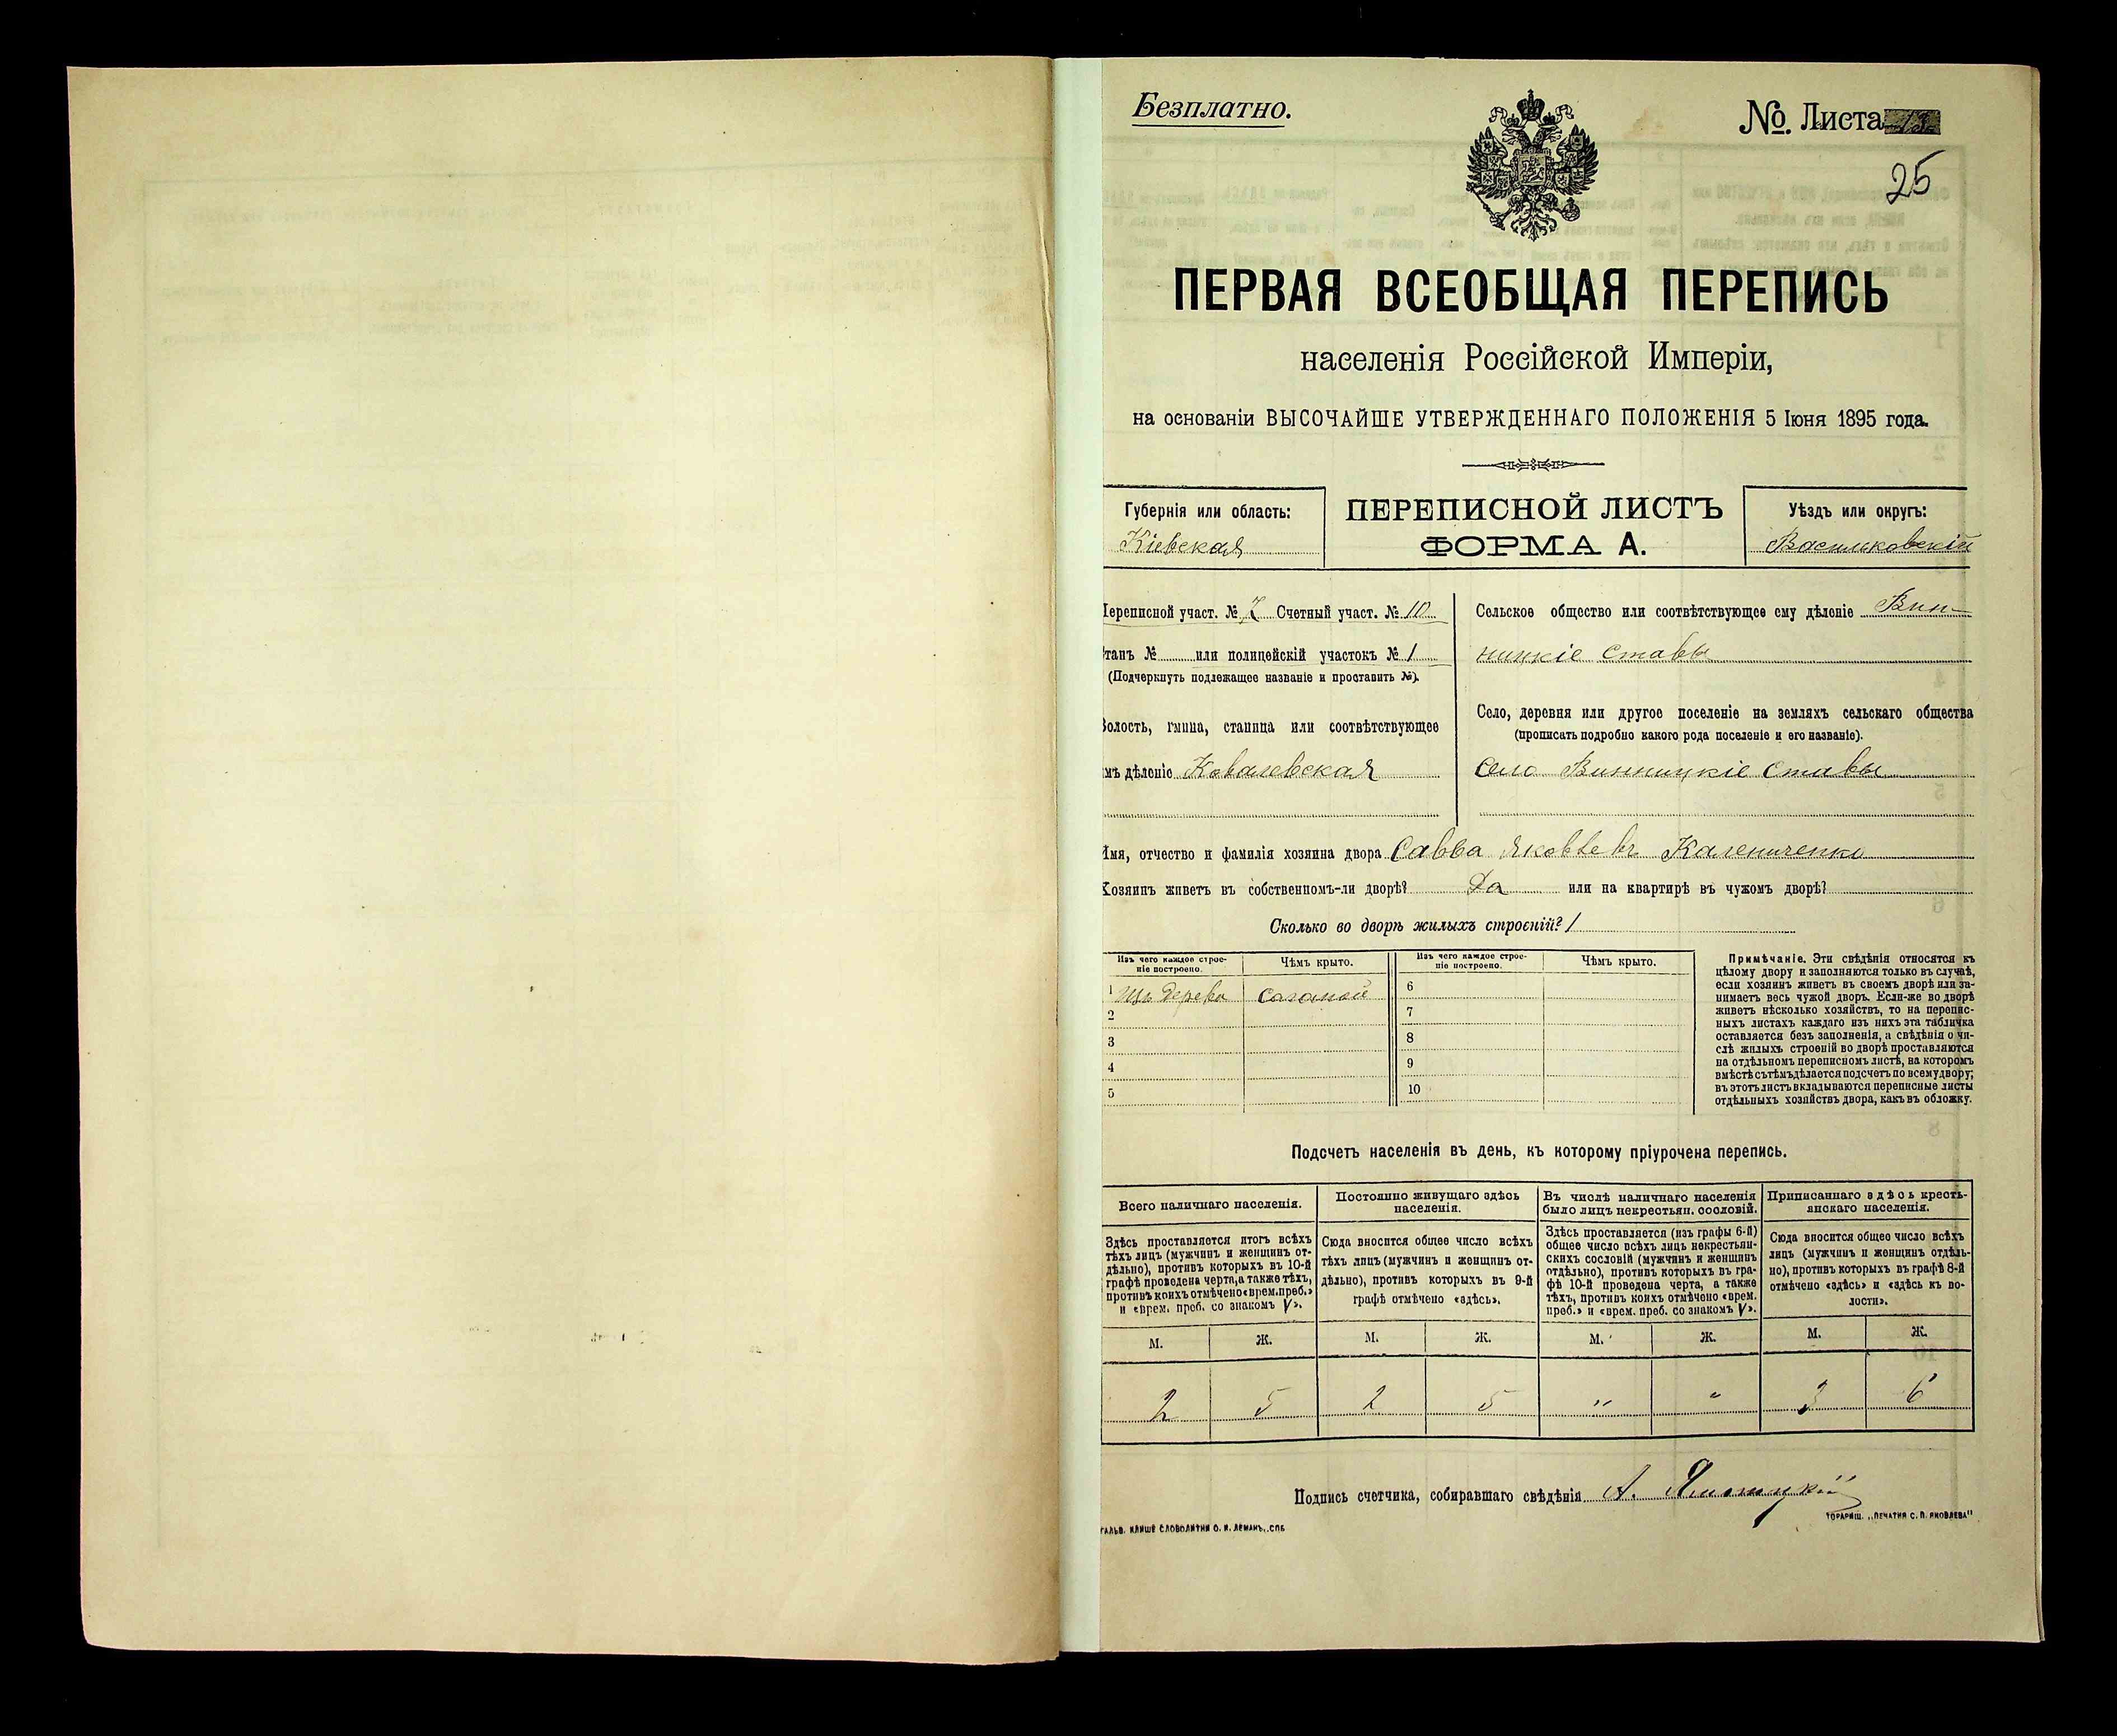 Безплатно.
№. Листа 13
25
ПЕРВАЯ ВСЕОБЩАЯ ПЕРЕПИСЬ
населенія Россійской Имперіи,
на основаніи ВЫСОЧАЙШЕ УТВЕРЖДЕННАГО ПОЛОЖЕНІЯ 5 Іюня 1895 года.
Губернія или область:
Кіевская
ПЕРЕПИСНОЙ ЛИСТЪ
ФОРМА А.
Уѣздъ или округъ:
Васильковскій
Переписной участ. № 7 Счетный участ. № 10
танъ № или полицейскій участокъ № 1
(Подчеркнуть подлежащее названіе и проставить №).
Волость, гмина, станица или соотвѣтствующее
имъ дѣленіе Ковалевская
Сельское общество или соотвѣтствующее ему дѣленіе Вин-
ницкіе Ставы
Село, деревня или другое поселеніе на земляхъ сельскаго общества
(прописать подробно какого рода поселеніе и его названіе).
село Винницкіе Ставы
Имя, отчество и фамилія хозяина двора Савва Яковлевъ Калениченко
Хозяинъ живетъ въ собственномъ-ли дворѣ? Да или на квартирѣ въ чужомъ дворѣ?
Сколько во дворѣ жилыхъ строеній? 1
Изъ чего каждое строе-
ніе построено.
Чѣмъ крыто.
Изъ чего каждое строе-
ніе построено.
Чѣмъ крыто.
1 Изъ дерева соломой
2
3
4
5
6
7
8
9
10
Примѣчаніе. Эти свѣдѣнія относятся къ
цѣлому двору и заполняются только въ случаѣ,
если хозяинъ живетъ въ своемъ дворѣ или за-
нимаетъ весь чужой дворъ. Если-же во дворѣ
живетъ нѣсколько хозяйствъ, то на перепис-
ныхъ листахъ каждаго изъ нихъ эта табличка
оставляется безъ заполненія, а свѣдѣнія о чи-
слѣ жилыхъ строеній во дворѣ проставляются
на отдѣльномъ переписномъ листѣ, на которомъ
вмѣстѣ съ тѣмъ дѣлается подсчетъ по всему двору;
въ этотъ листъ вкладываются переписные листы
отдѣльныхъ хозяйствъ двора, какъ въ обложку.
Подсчетъ населенія въ день, къ которому пріурочена перепись.
Всего наличнаго населенія.
Здѣсь проставляется итогъ всѣхъ
тѣхъ лицъ (мужчинъ и женщинъ от-
дѣльно), противъ которыхъ въ 10-й
графѣ проведена черта, а также тѣхъ,
противъ коихъ отмѣчено «врем. преб.»
и «врем. преб. со знакомъ V».
Постоянно живущаго здѣсь
населенія.
Сюда вносится общее число всѣхъ
тѣхъ лицъ (мужчинъ и женщинъ от-
дѣльно), противъ которыхъ въ 9-й
графѣ отмѣчено «здѣсь».
Въ числѣ наличнаго населенія
было лицъ некрестьян. сословій.
Здѣсь проставляется (изъ графы 6-й)
общее число всѣхъ лицъ некрестьян-
скихъ сословій (мужчинъ и женщинъ
отдѣльно), противъ которыхъ въ гра-
фѣ 10-й проведена черта, а также
тѣхъ, противъ коихъ отмѣчено «врем.
преб.» и «врем. преб. со знакомъ V».
Приписаннаго здѣсь кресть-
янскаго населенія.
Сюда вносится общее число всѣхъ
лицъ (мужчинъ и женщинъ отдѣль-
но), противъ которыхъ въ графѣ 8-й
отмѣчено «здѣсь» и «здѣсь къ во-
лости».
М. Ж. М. Ж. М. Ж. М. Ж.
2 5 2 5 " " 3 6
Подпись счетчика, собиравшаго свѣдѣнія А.
ГАЛЬВ. КЛИШЕ СЛОВОЛИТНИ О. И. ЛЕМАНЪ, СПБ
ТОВАРИЩ. „ПЕЧАТНЯ С. П. ЯКОВЛЕВА"